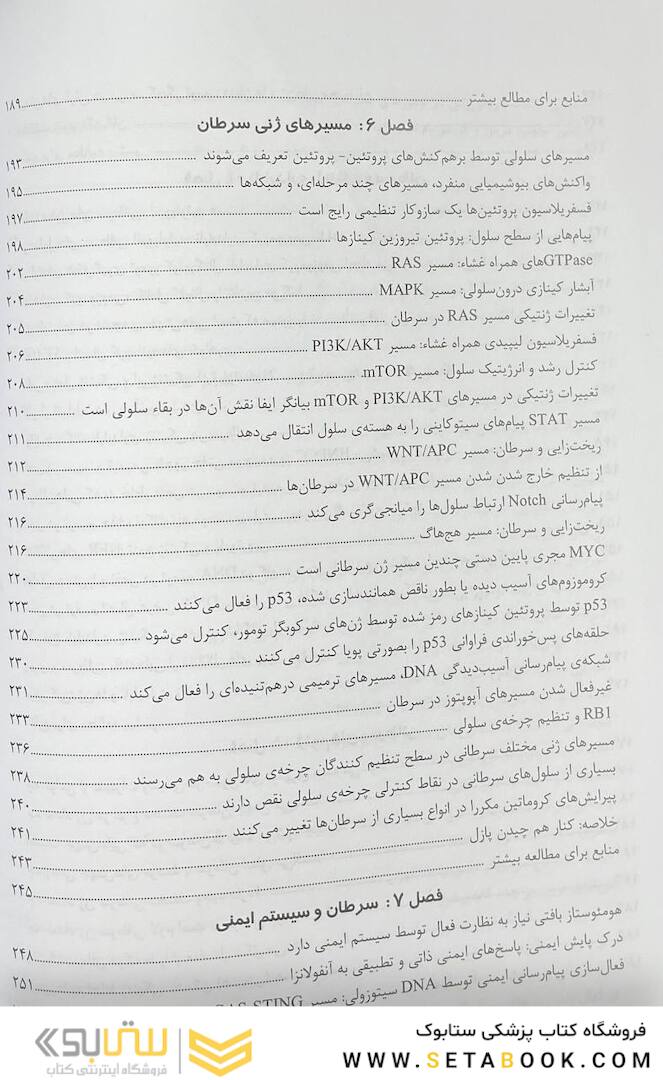 منابع برای مطالع بیشتر ........ ۱۸۹
فصل ۶: مسیرهای ژنی سرطان
مسیرهای سلولی توسط برهم‌کنش‌های پروتئین- پروتئین تعریف می‌شوند ........ ۱۹۳
واکنش‌های بیوشیمیایی منفرد، مسیرهای چند مرحله‌ای، و شبکه‌ها ........ ۱۹۵
فسفریلاسیون پروتئین‌ها یک سازوکار تنظیمی رایج است ........ ۱۹۷
پیام‌هایی از سطح سلول: پروتئین تیروزین کینازها ........ ۱۹۸
GTPaseهای همراه غشاء: مسیر RAS ........ ۲۰۲
آبشار کینازی درون‌سلولی: مسیر MAPK ........ ۲۰۴
تغییرات ژنتیکی مسیر RAS در سرطان ........ ۲۰۵
فسفریلاسیون لیپیدی همراه غشاء: مسیر PI3K/AKT ........ ۲۰۶
کنترل رشد و انرژیتیک سلول: مسیر mTOR. ........ ۲۰۸
تغییرات ژنتیکی در مسیرهای PI3K/AKT و mTOR بیانگر ایفا نقش آن‌ها در بقاء سلولی است ........ ۲۱۰
مسیر STAT پیام‌های سیتوکاینی را به هسته‌ی سلول انتقال می‌دهد ........ ۲۱۱
ریخت‌زایی و سرطان: مسیر WNT/APC ........ ۲۱۲
از تنظیم خارج شدن شدن مسیر WNT/APC در سرطان‌ها ........ ۲۱۴
پیام‌رسانی Notch ارتباط سلول‌ها را میانجی‌گری می‌کند ........ ۲۱۶
ریخت‌زایی و سرطان: مسیر هج‌هاگ ........ ۲۱۶
MYC مجری پایین دستی چندین مسیر ژن سرطانی است ........ ۲۲۰
کروموزوم‌های آسیب دیده یا بطور ناقص همانندسازی شده، p53 را فعال می‌کنند ........ ۲۲۳
p53 توسط پروتئین کینازهای رمز شده توسط ژن‌های سرکوبگر تومور، کنترل می‌شود ........ ۲۲۵
حلقه‌های پس‌خوراندی فراوانی p53 را بصورتی پویا کنترل می‌کنند ........ ۲۳۰
شبکه‌ی پیام‌رسانی آسیب‌دیدگی DNA، مسیرهای ترمیمی درهم‌تنیده‌ای را فعال می‌کند ........ ۲۳۱
غیرفعال شدن مسیرهای آپوپتوز در سرطان ........ ۲۳۳
RB1 و تنظیم چرخه‌ی سلولی ........ ۲۳۶
مسیرهای ژنی مختلف سرطانی در سطح تنظیم کنندگان چرخه‌ی سلولی به هم می‌رسند ........ ۲۳۸
بسیاری از سلول‌های سرطانی در نقاط کنترلی چرخه‌ی سلولی نقص دارند ........ ۲۴۰
پیرایش‌های کروماتین مکررا در انواع بسیاری از سرطان‌ها تغییر می‌کنند ........ ۲۴۱
خلاصه: کنار هم چیدن پازل ........ ۲۴۳
منابع برای مطالعه بیشتر ........ ۲۴۵
فصل ۷: سرطان و سیستم ایمنی
هومئوستاز بافتی نیاز به نظارت فعال توسط سیستم ایمنی دارد ........ ۲۴۸
درک پایش ایمنی: پاسخ‌های ایمنی ذاتی و تطبیقی به آنفولانزا ........ ۲۵۱
فعال‌سازی پیام‌رسانی ایمنی توسط DNA سیتوزولی: مسیر
فروشگاه کتاب پزشکی ستابوک
WWW.SETABOOK.COM
ستابوک
فروشگاه اینترنتی کتاب